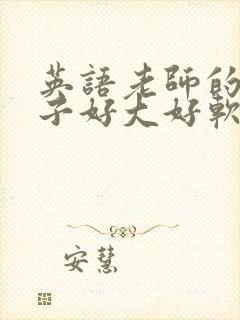 英語老師的
子好大好軟
安慧